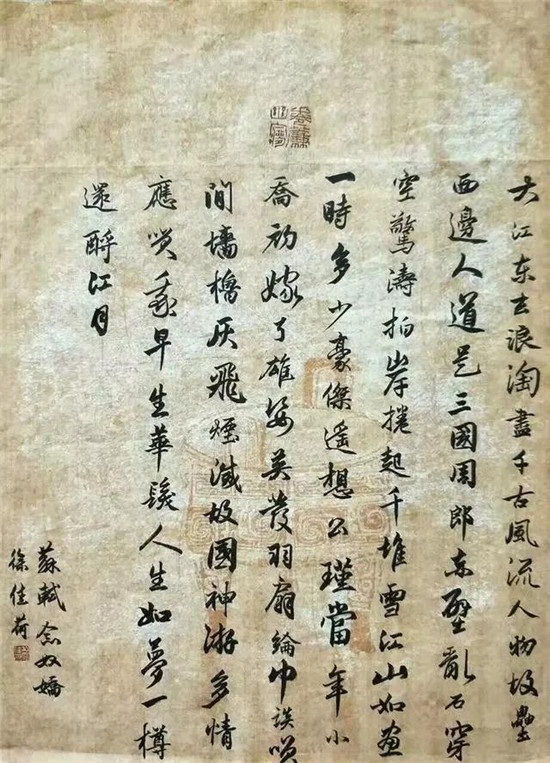 大江东去浪淘盡千古風流人物故壘
西邊人道是三國周郎赤壁亂石穿
空驚涛拍岸捲起千堆雪江山如畫
一時多少豪傑遥想公瑾當年小
喬初嫁了雄姿英發羽扇綸巾談咲
間墻櫓灰飛煙滅故國神游多情
應咲我早生華髮人生如夢一樽
還酹江月
蘇軾念奴嬌
徐佳荷